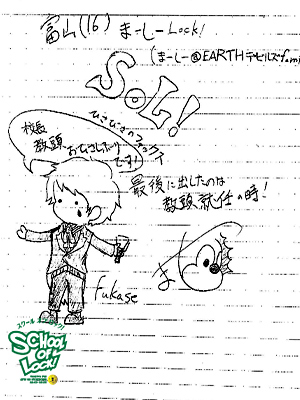 富山(16) まーしーLock!
(まーしー@EARTHデビルズfam)
SOL!
ひさびさのファックス
校長
教頭 おひさしぶり
です!
最後に出したのは
教頭就任の時!
ま
fukase
スクール オブ ロック!
SCHOOL
OF
LOCK!